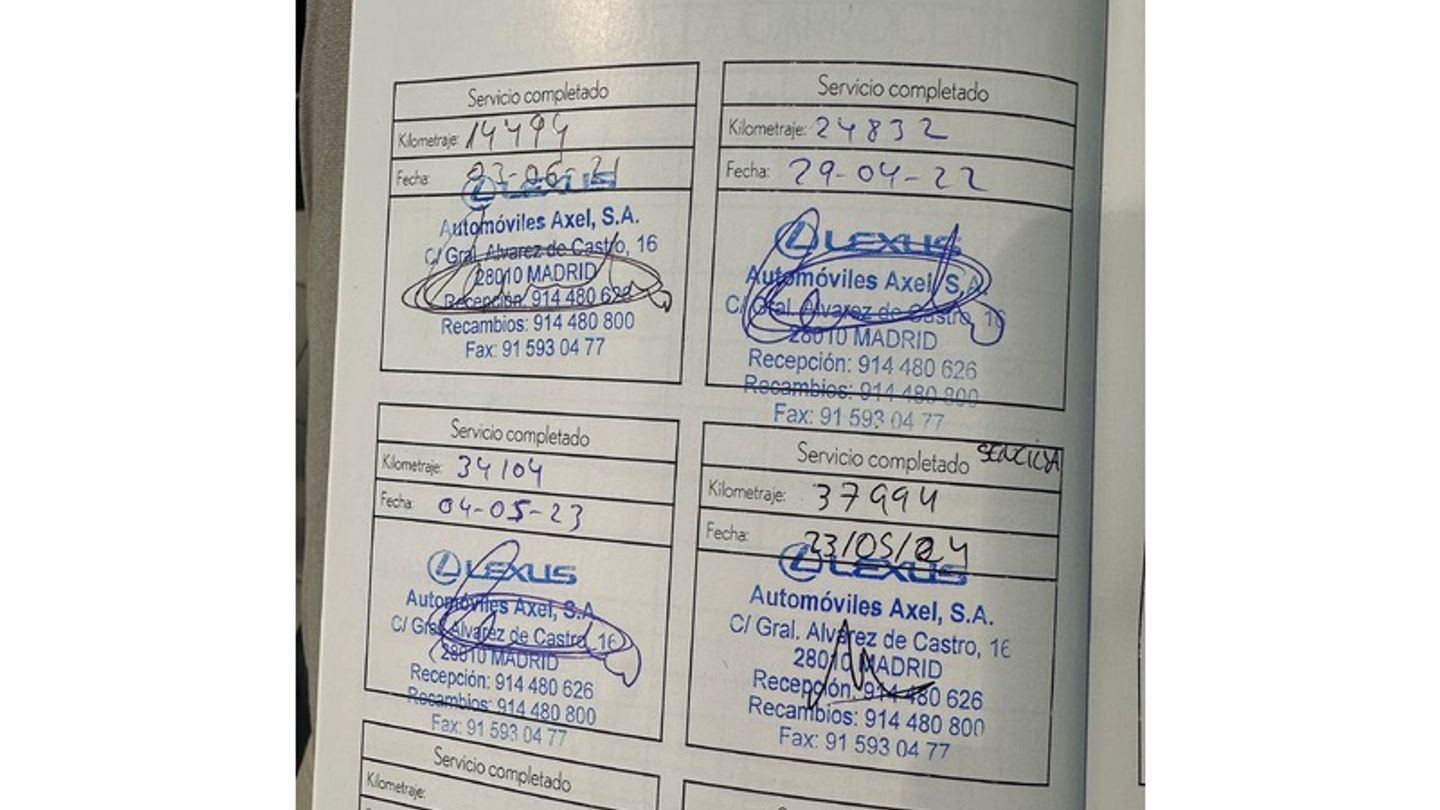 Servicio completado
Kilometraje: 14494
Fecha: 03-06-21
LEXUS
Automóviles Axel, S.A.
C/ Gral. Alvarez de Castro, 16
28010 MADRID
Recepción: 914 480 626
Recambios: 914 480 800
Fax: 91 593 04 77
Servicio completado
Kilometraje: 24832
Fecha: 29-04-22
LEXUS
Automóviles Axel, S.A.
C/ Gral. Alvarez de Castro, 16
28010 MADRID
Recepción: 914 480 626
Recambios: 914 480 800
Fax: 91 593 04 77
Servicio completado
Kilometraje: 34104
Fecha: 04-05-23
LEXUS
Automóviles Axel, S.A.
C/ Gral. Alvarez de Castro, 16
28010 MADRID
Recepción: 914 480 626
Recambios: 914 480 800
Fax: 91 593 04 77
Servicio completado
Kilometraje: 37994
Fecha: 23/05/24
LEXUS
Automóviles Axel, S.A.
C/ Gral. Alvarez de Castro, 16
28010 MADRID
Recepción: 914 480 626
Recambios: 914 480 800
Fax: 91 593 04 77
Servicio completado
Kilometraje: